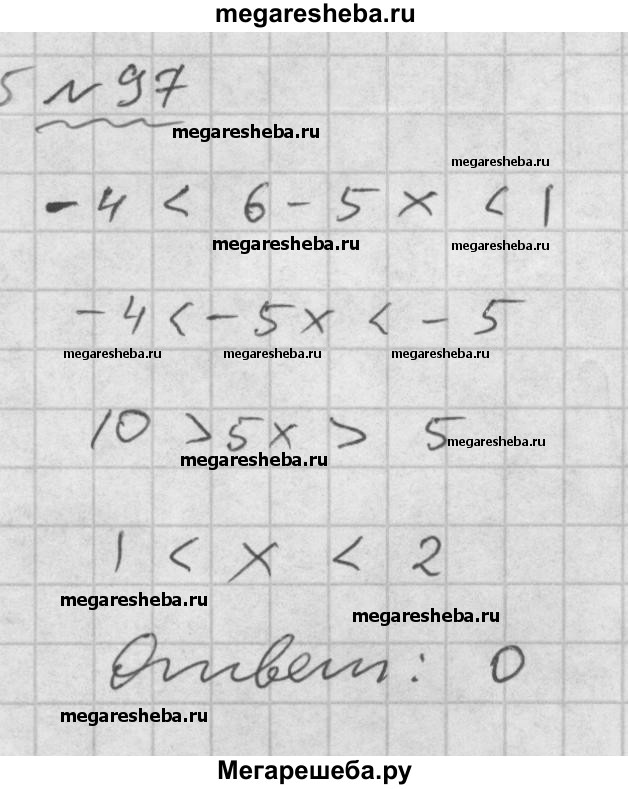 megaresheba.ru
5 № 97
megaresheba.ru
megaresheba.ru
-4 < 6 - 5x < 1
megaresheba.ru megaresheba.ru
-4 < -5x < -5
megaresheba.ru megaresheba.ru megaresheba.ru
10 > 5x > 5
megaresheba.ru
megaresheba.ru
1 < x < 2
megaresheba.ru
megaresheba.ru
Ответ: 0
megaresheba.ru
Мегарешеба.ру